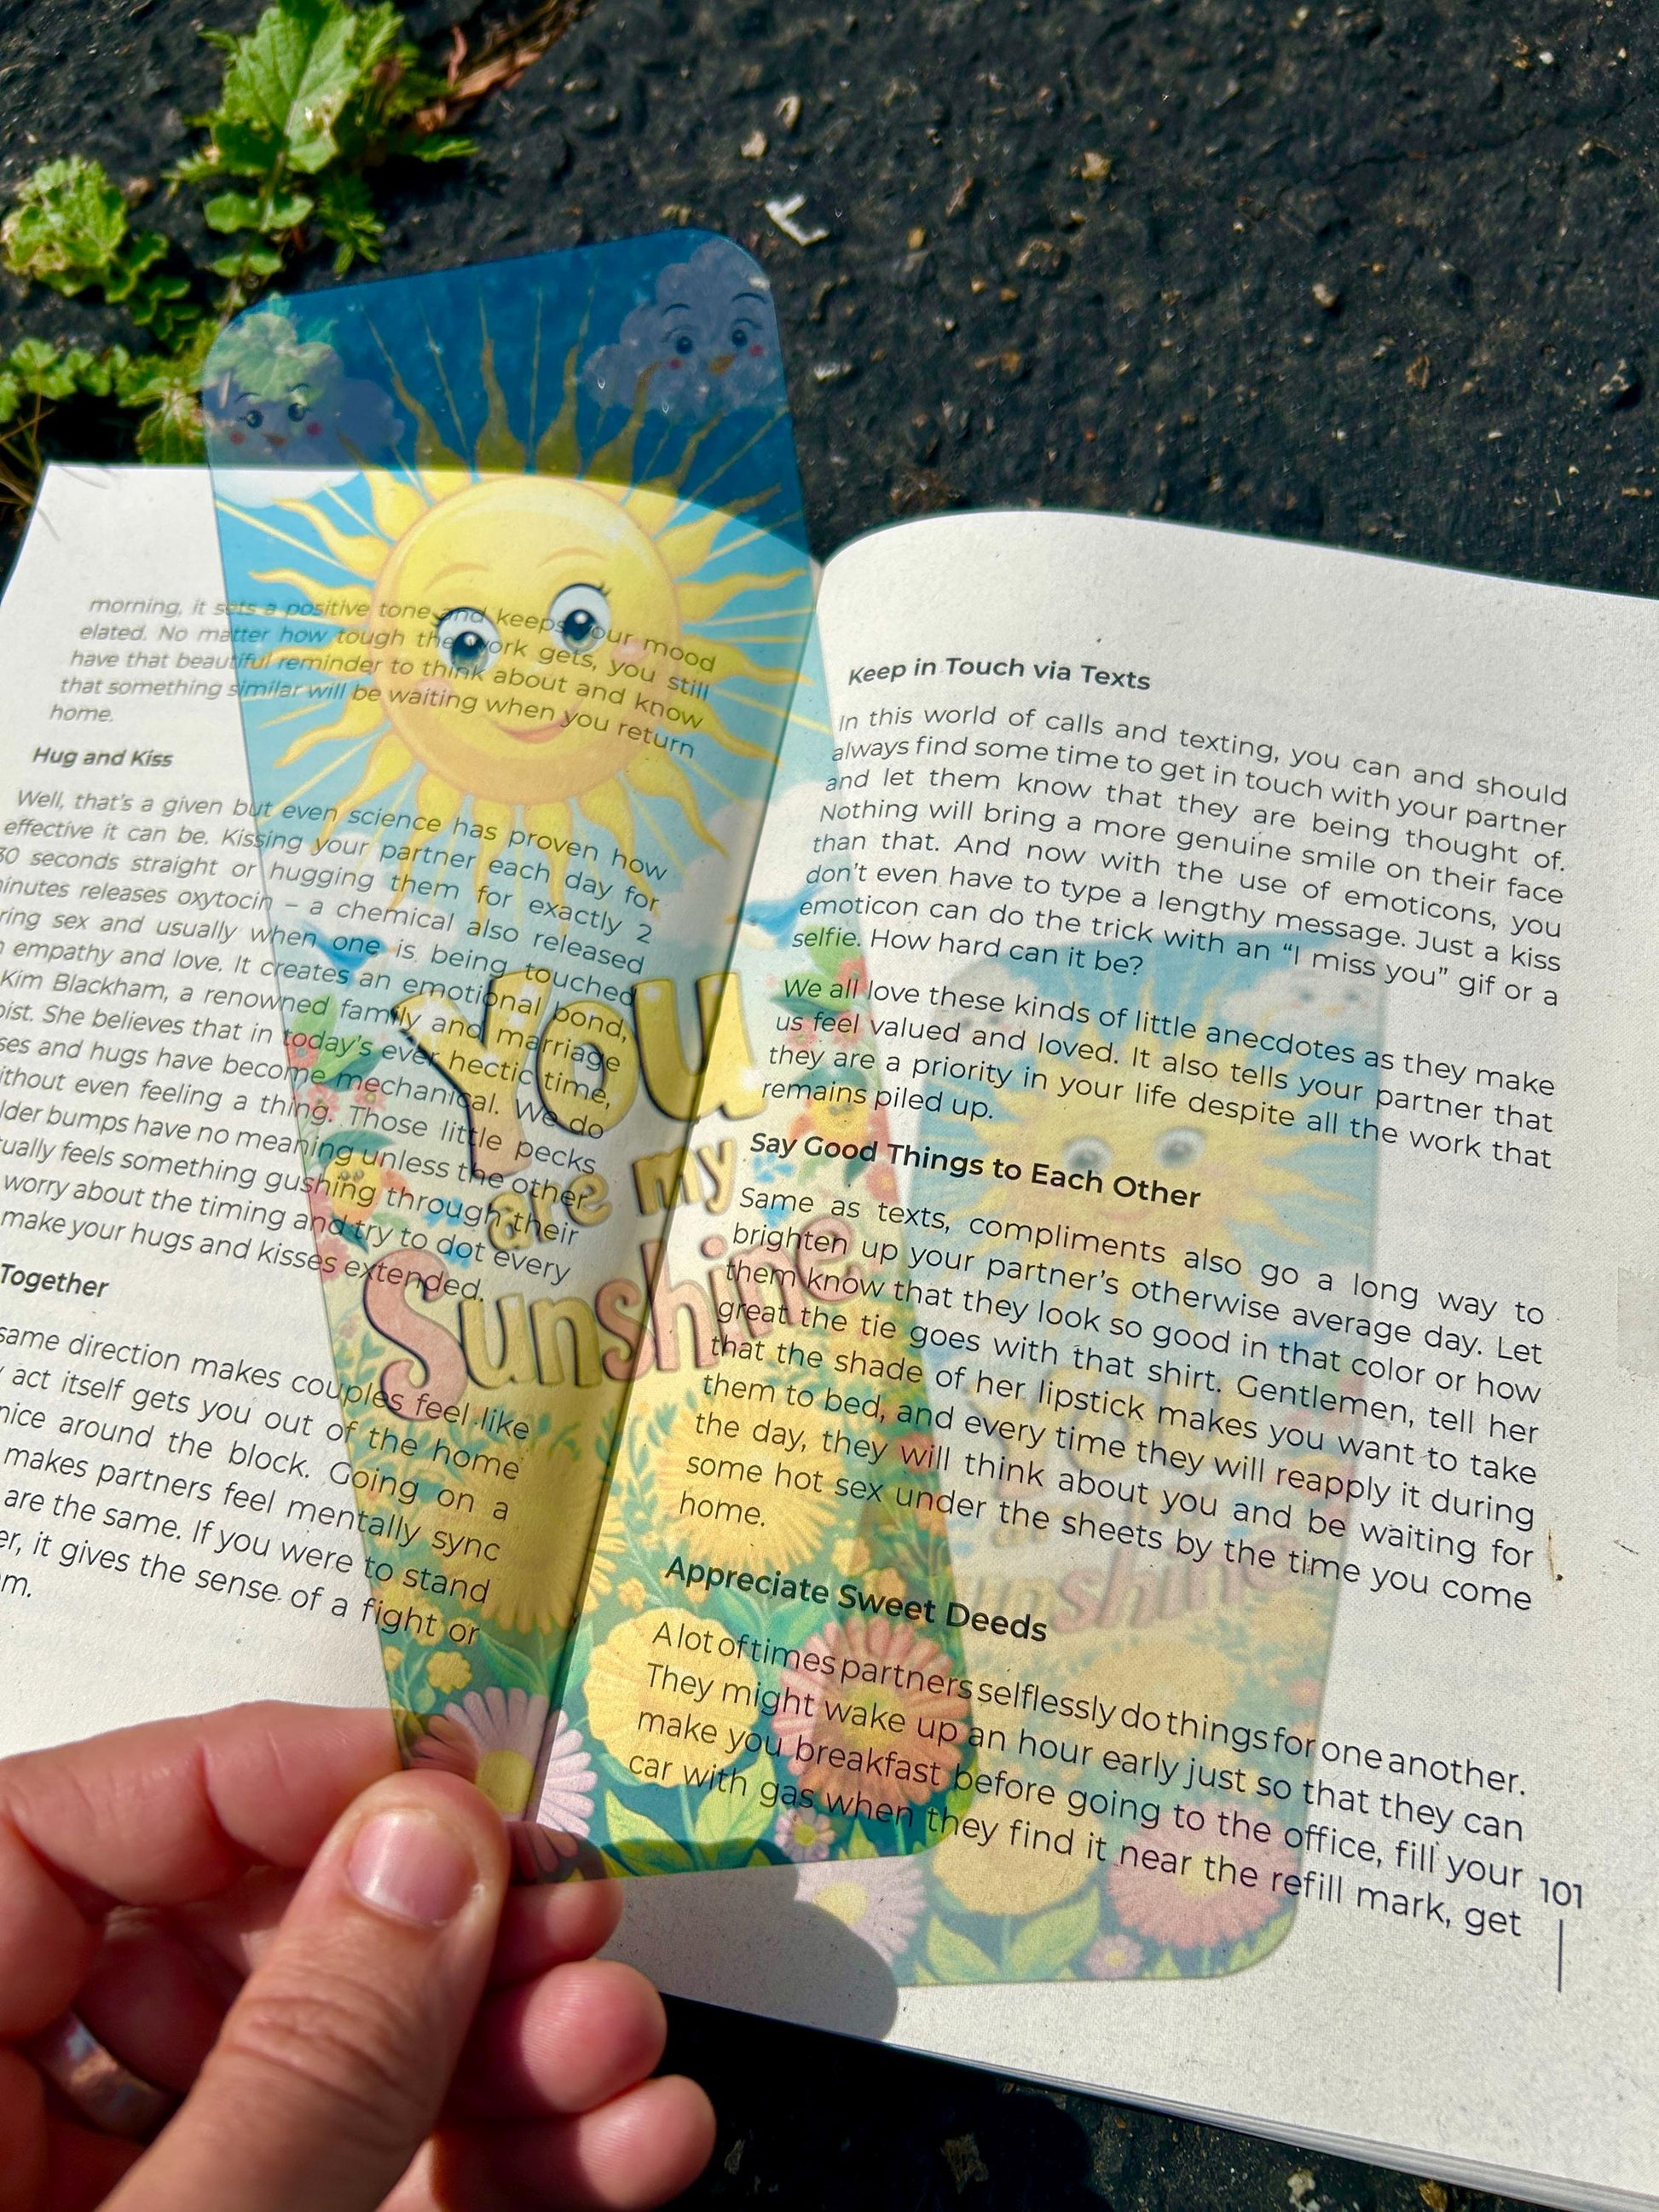 morning, it sets a positive tone and keeps your mood
elated. No matter how tough the work gets, you still
have that beautiful reminder to think about and know
that something similar will be waiting when you return
home.
Hug and Kiss
Well, that's a given but even science has proven how
effective it can be. Kissing your partner each day for
30 seconds straight or hugging them for exactly 2
minutes releases oxytocin – a chemical also released
ring sex and usually when one is being touched
empathy and love. It creates an emotional bond,
Kim Blackham, a renowned family and marriage
pist. She believes that in today's ever hectic time,
ses and hugs have become mechanical. We do
ithout even feeling a thing. Those little pecks
lder bumps have no meaning unless the other
ually feels something gushing through their
worry about the timing and try to dot every
make your hugs and kisses extended.
Together
same direction makes couples feel like
act itself gets you out of the home
nice around the block. Going on a
makes partners feel mentally sync
are the same. If you were to stand
er, it gives the sense of a fight or
m.
You
are my
Sunshine
Keep in Touch via Texts
In this world of calls and texting, you can and should
always find some time to get in touch with your partner
and let them know that they are being thought of.
Nothing will bring a more genuine smile on their face
than that. And now with the use of emoticons, you
don't even have to type a lengthy message. Just a kiss
emoticon can do the trick with an "I miss you" gif or a
selfie. How hard can it be?
We all love these kinds of little anecdotes as they make
us feel valued and loved. It also tells your partner that
they are a priority in your life despite all the work that
remains piled up.
Say Good Things to Each Other
Same as texts, compliments also go a long way to
brighten up your partner's otherwise average day. Let
them know that they look so good in that color or how
great the tie goes with that shirt. Gentlemen, tell her
that the shade of her lipstick makes you want to take
them to bed, and every time they will reapply it during
the day, they will think about you and be waiting for
some hot sex under the sheets by the time you come
home.
Appreciate Sweet Deeds
A lot of times partners selflessly do things for one another.
They might wake up an hour early just so that they can
make you breakfast before going to the office, fill your
car with gas when they find it near the refill mark, get
101